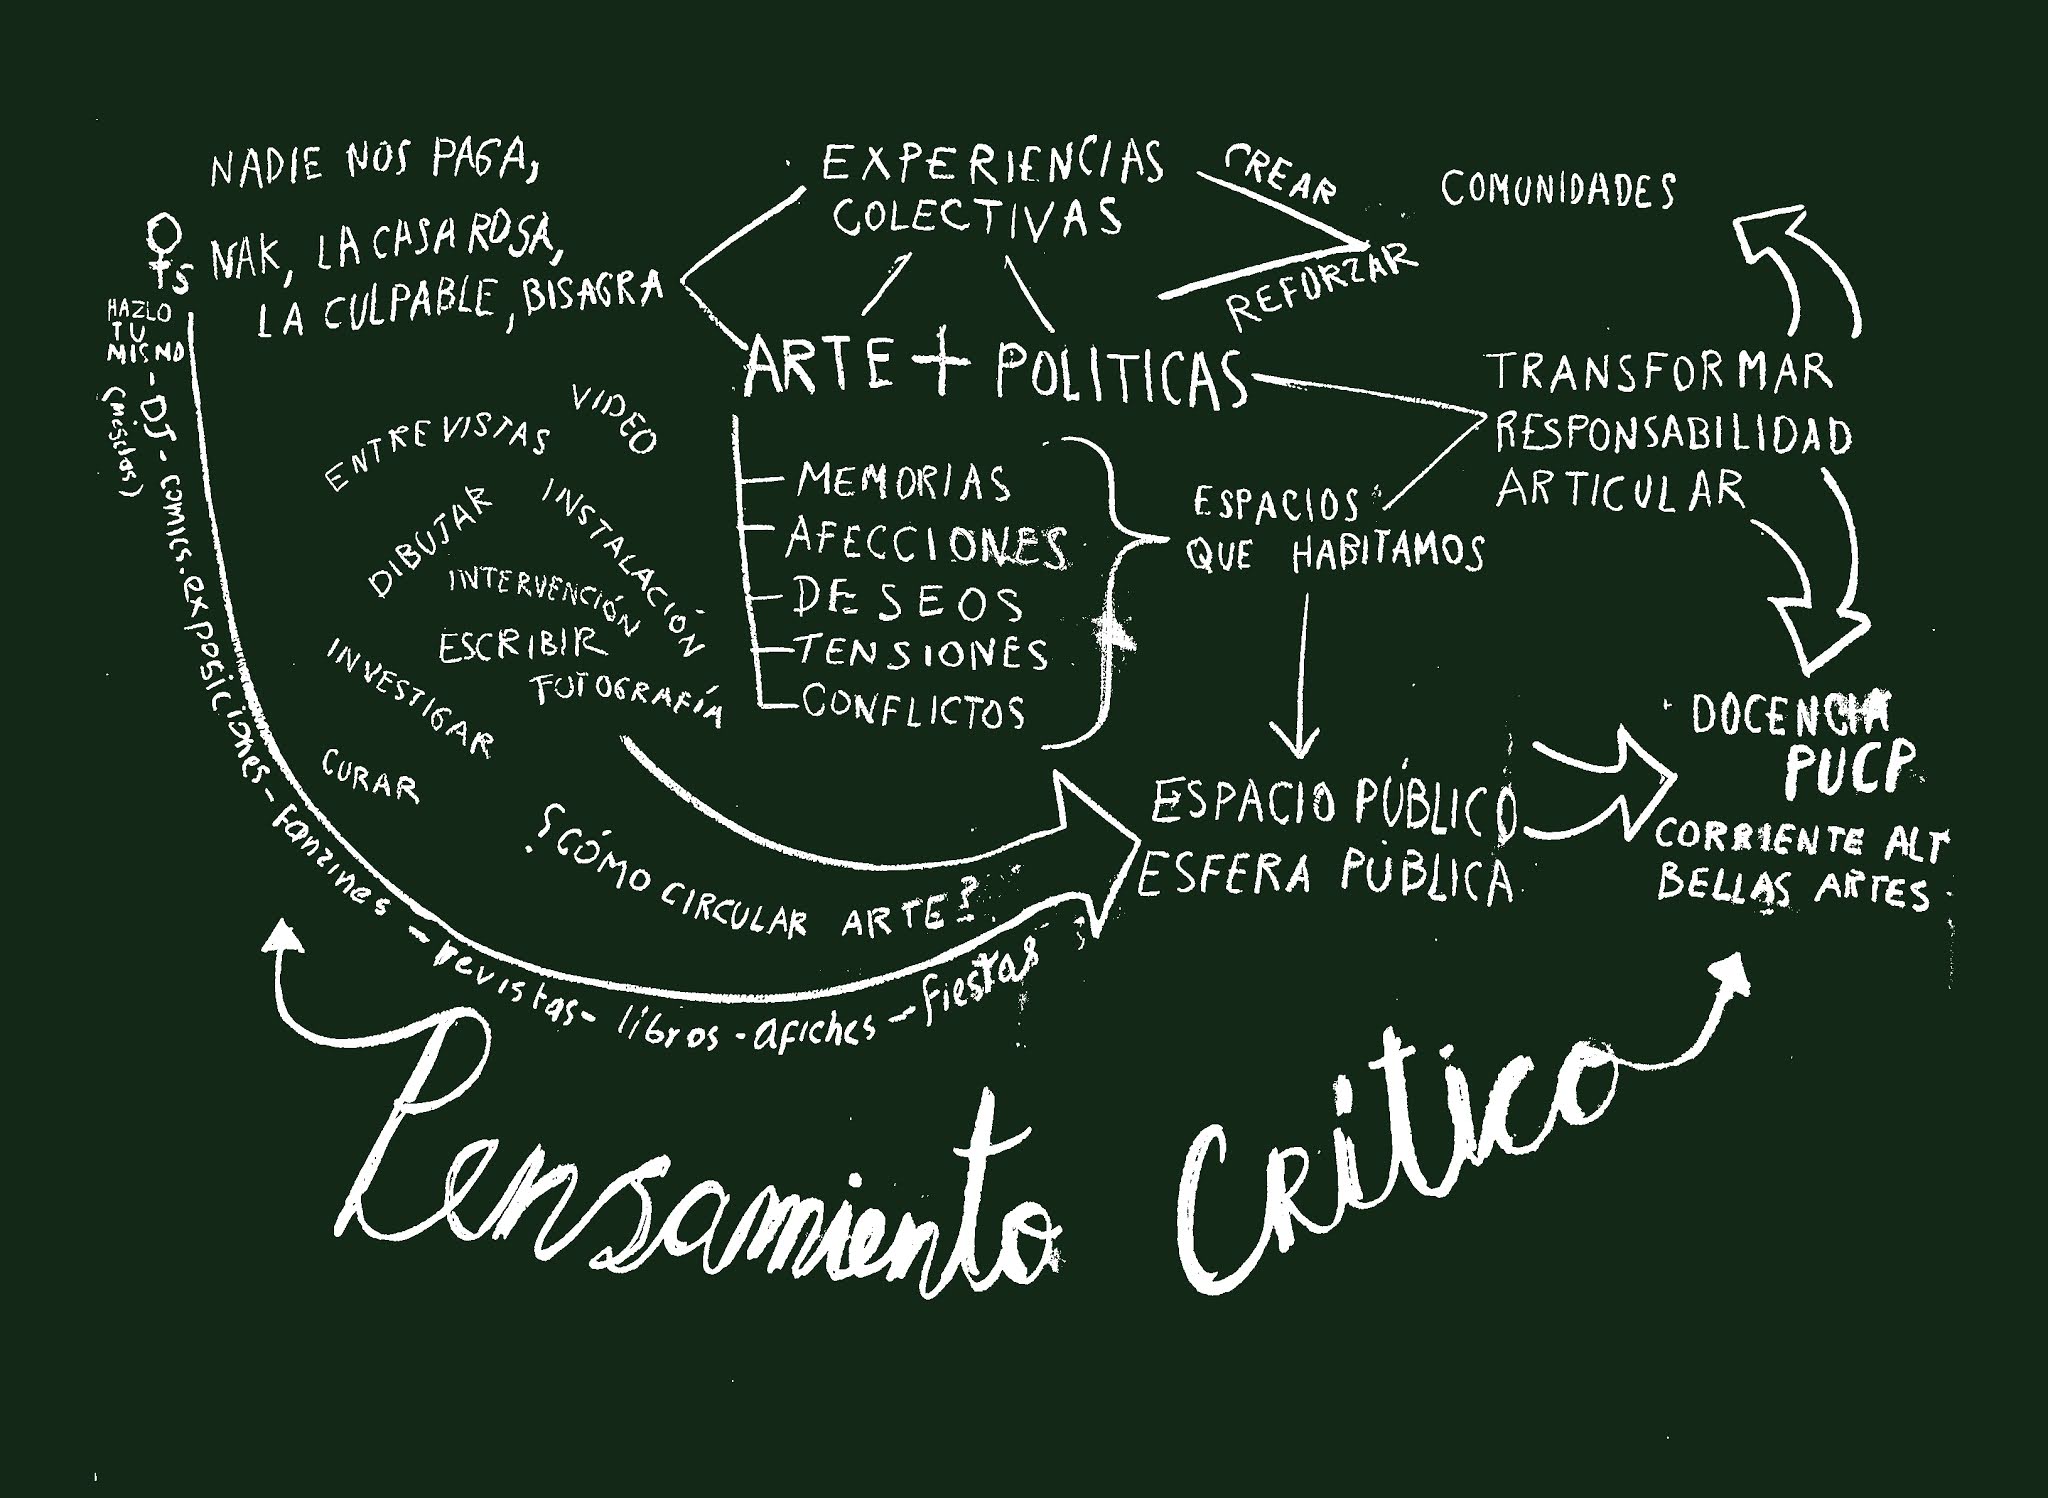 NADIE NOS PAGA,
NAK, LA CASA ROSA,
LA CULPABLE, BISAGRA
♀s
HAZLO
TU
MISMO
- DJ - comics. exposiciones - fanzines - revistas - libros - afiches - fiestas
(mesclas)
EXPERIENCIAS
COLECTIVAS
CREAR
REFORZAR
COMUNIDADES
ARTE + POLITICAS
TRANSFORMAR
RESPONSABILIDAD
ARTICULAR
VIDEO
ENTREVISTAS
DIBUJAR
INSTALACIÓN
INTERVENCIÓN
ESCRIBIR
FOTOGRAFÍA
INVESTIGAR
CURAR
MEMORIAS
AFECCIONES
DESEOS
TENSIONES
CONFLICTOS
ESPACIOS
QUE HABITAMOS
¿CÓMO CIRCULAR ARTE?
ESPACIO PÚBLICO
ESFERA PÚBLICA
DOCENCIA
PUCP
CORRIENTE ALT
BELLAS ARTES
Pensamiento Crítico